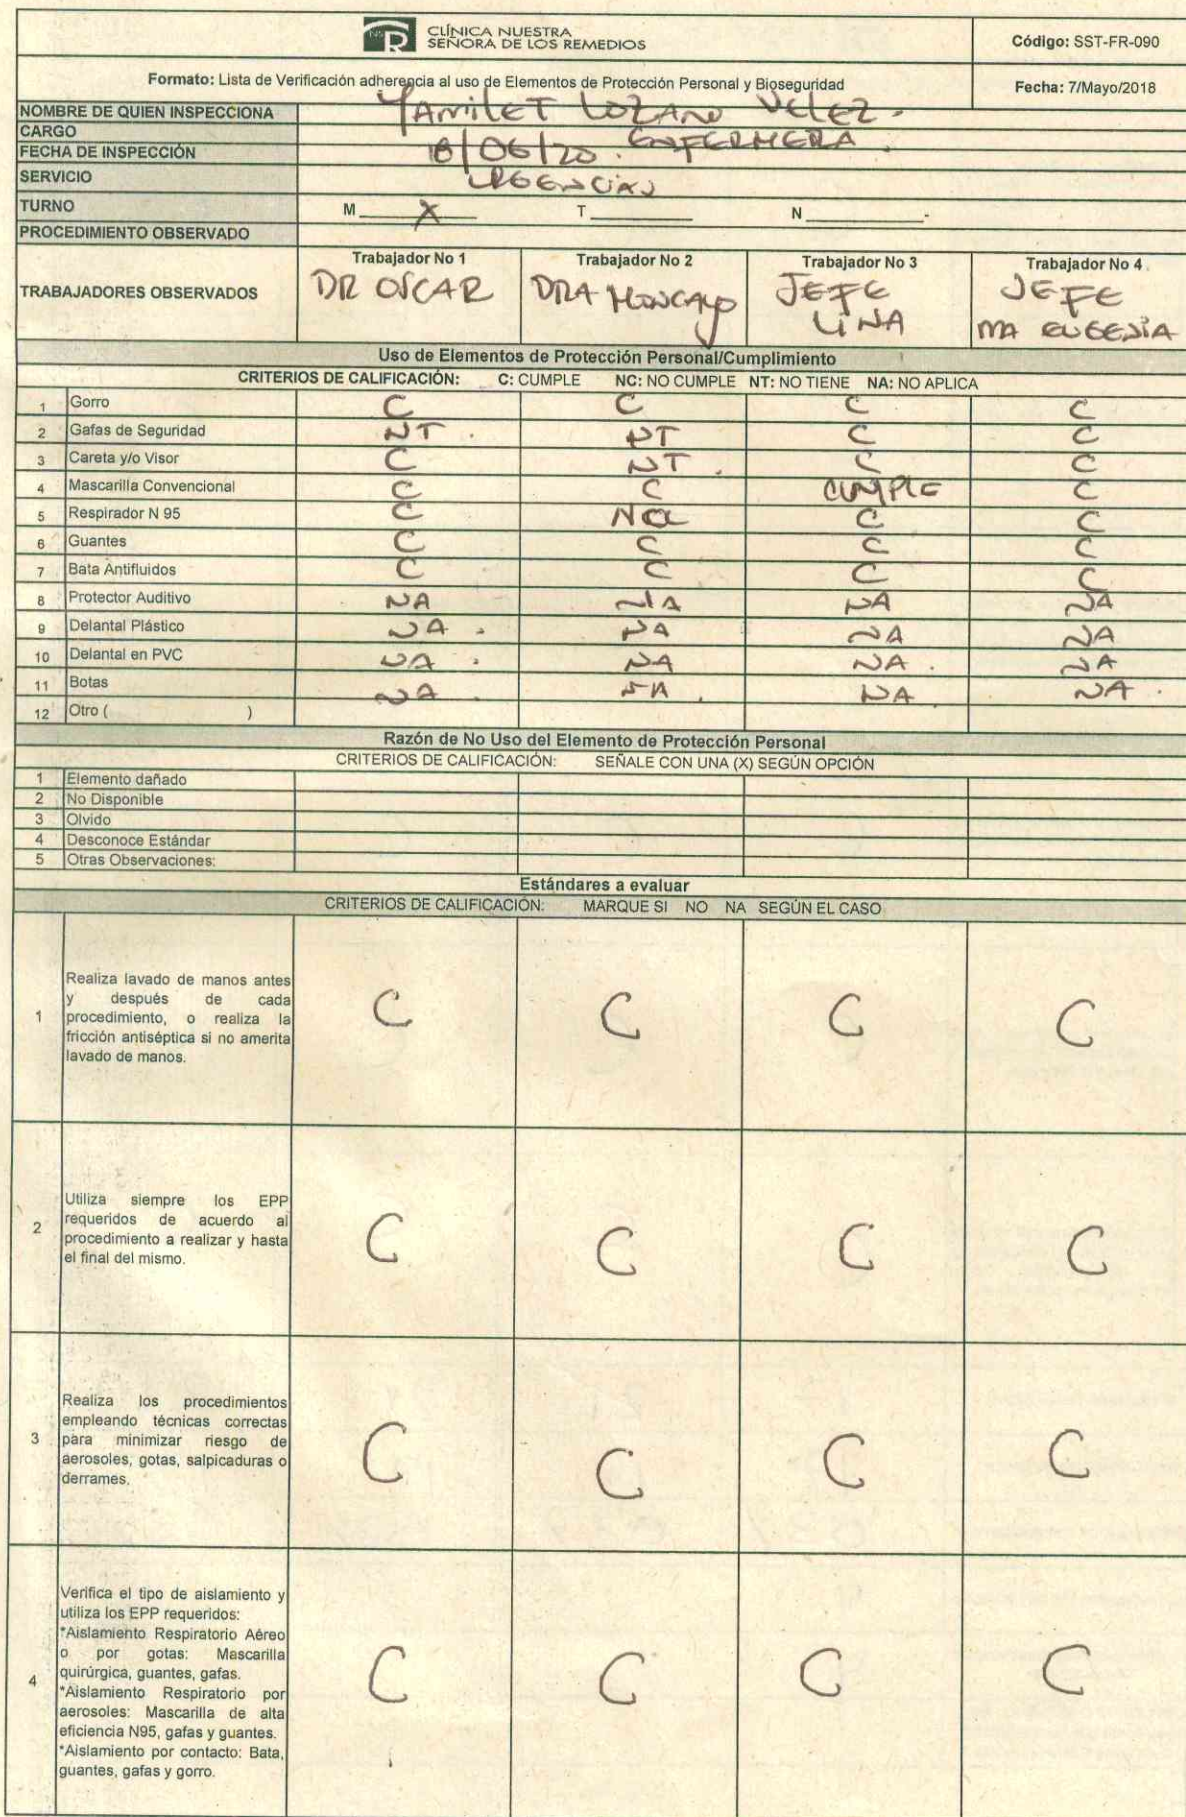 NS
R
CLÍNICA NUESTRA
SEÑORA DE LOS REMEDIOS
Código: SST-FR-090
Formato: Lista de Verificación adherencia al uso de Elementos de Protección Personal y Bioseguridad
Fecha: 7/Mayo/2018
NOMBRE DE QUIEN INSPECCIONA YAMILET LOZANO VELEZ.
CARGO ENFERMERA.
FECHA DE INSPECCIÓN 18/06/20.
SERVICIO URGENCIAS
TURNO M X T N
PROCEDIMIENTO OBSERVADO
TRABAJADORES OBSERVADOS
Trabajador No 1 Trabajador No 2 Trabajador No 3 Trabajador No 4
DR OSCAR DRA MONCAYO JEFE LINA JEFE MA EUGENIA
Uso de Elementos de Protección Personal/Cumplimiento
CRITERIOS DE CALIFICACIÓN: C: CUMPLE NC: NO CUMPLE NT: NO TIENE NA: NO APLICA
1 Gorro C C C C
2 Gafas de Seguridad NT. NT C C
3 Careta y/o Visor C NT. C C
4 Mascarilla Convencional C C CUMPLE C
5 Respirador N 95 C C C
6 Guantes C C C C
7 Bata Antifluidos C C C C
8 Protector Auditivo NA NA NA NA
9 Delantal Plástico NA. NA NA NA
10 Delantal en PVC NA. NA NA. NA
11 Botas NA NA NA NA.
12 Otro ( )
Razón de No Uso del Elemento de Protección Personal
CRITERIOS DE CALIFICACIÓN: SEÑALE CON UNA (X) SEGÚN OPCIÓN
1 Elemento dañado
2 No Disponible
3 Olvido
4 Desconoce Estándar
5 Otras Observaciones:
Estándares a evaluar
CRITERIOS DE CALIFICACIÓN: MARQUE SI NO NA SEGÚN EL CASO
1 Realiza lavado de manos antes
y después de cada
procedimiento, o realiza la
fricción antiséptica si no amerita
lavado de manos.
C C C C
2 Utiliza siempre los EPP
requeridos de acuerdo al
procedimiento a realizar y hasta
el final del mismo.
C C C C
3 Realiza los procedimientos
empleando técnicas correctas
para minimizar riesgo de
aerosoles, gotas, salpicaduras o
derrames.
C C C C
4 Verifica el tipo de aislamiento y
utiliza los EPP requeridos:
*Aislamiento Respiratorio Aéreo
o por gotas: Mascarilla
quirúrgica, guantes, gafas.
*Aislamiento Respiratorio por
aerosoles: Mascarilla de alta
eficiencia N95, gafas y guantes.
*Aislamiento por contacto: Bata,
guantes, gafas y gorro.
C C C C